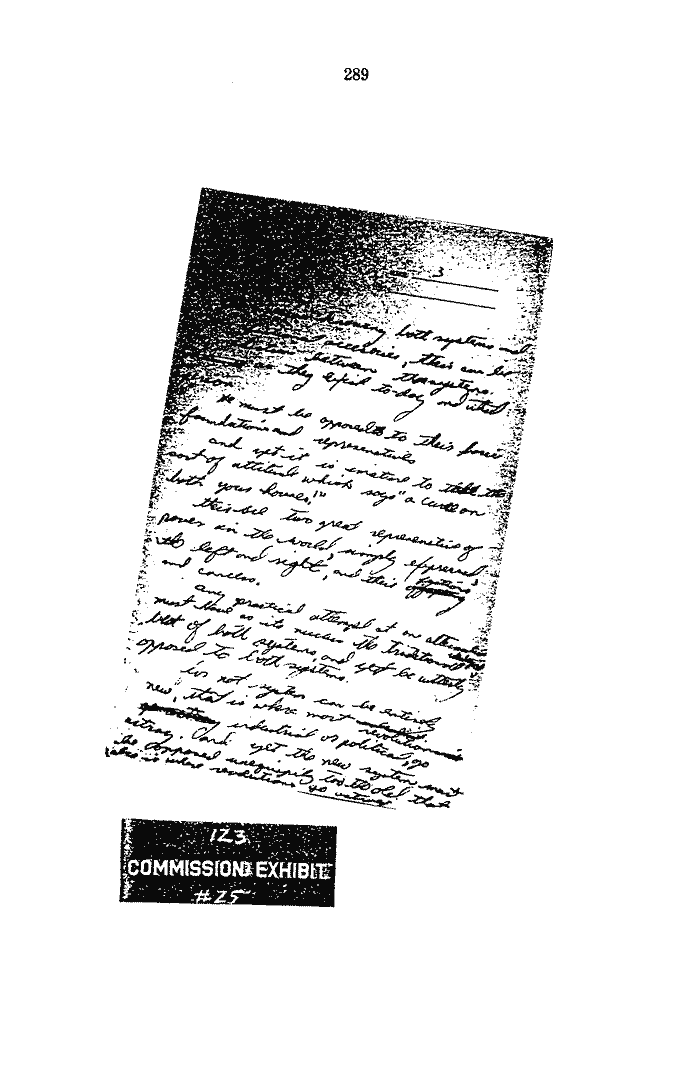 289
3
both systems and
accessories, their can be
between the systems.
they exist to-day and
person
He must be opposed to their
foundations and representatives
and yet it is imature to take the
sort of attitude which says "a curse on
both your houses!"
their are two great representative of
power in the world, simply expressed,
the left and right, and their factions
and concless.
any practical attempt at one alternative
must have as its nucleus the traditional
best of both systems, and yet be utterly
opposed to both systems.
for not system can be entirely
new, that is where most revolutions
industrial or political, go
astray. And yet the new system must
be opposed unequipily too the old that
also is where revolutions go astray.
123
COMMISSION EXHIBIT
#25